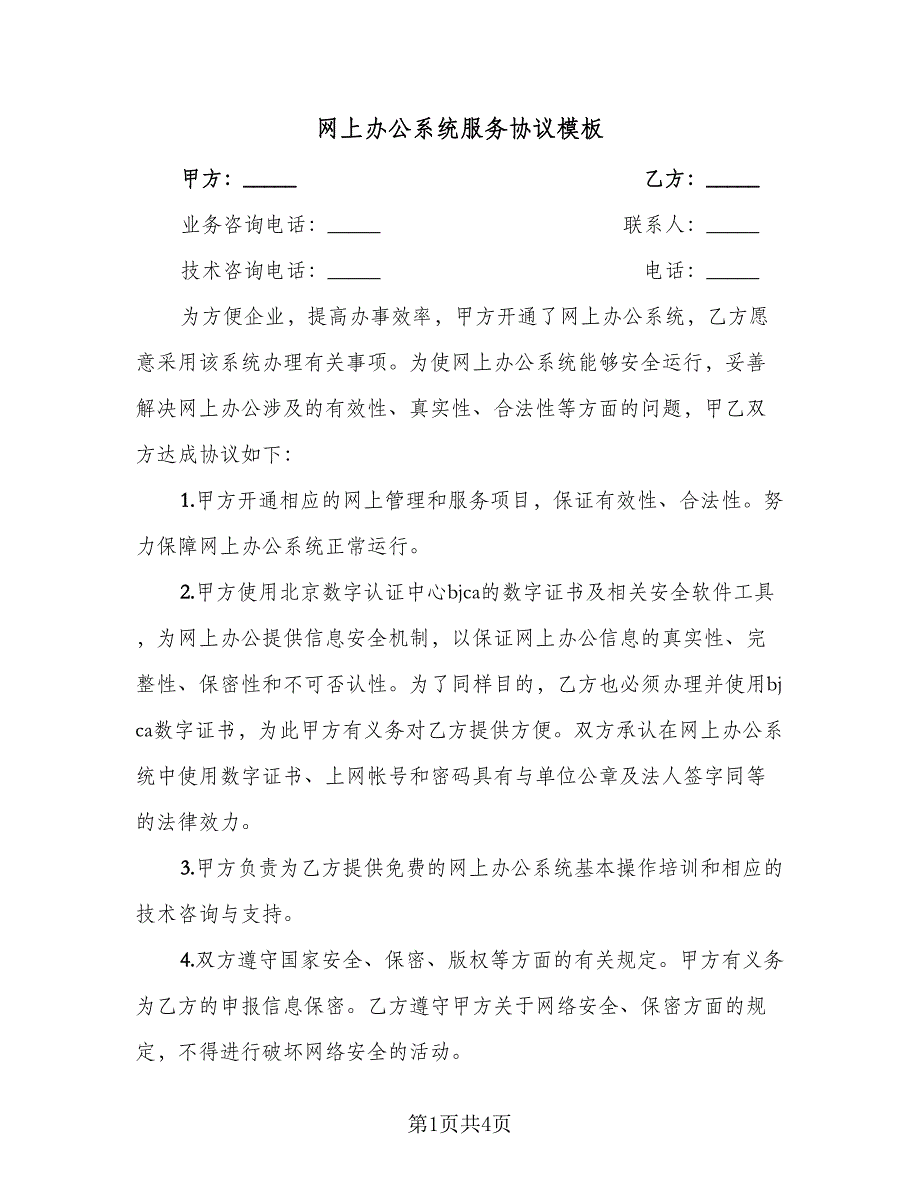 网上办公系统服务协议模板
甲方：_____ 乙方：_____
业务咨询电话：_____ 联系人：_____
技术咨询电话：_____ 电话：_____
为方便企业，提高办事效率，甲方开通了网上办公系统，乙方愿
意采用该系统办理有关事项。为使网上办公系统能够安全运行，妥善
解决网上办公涉及的有效性、真实性、合法性等方面的问题，甲乙双
方达成协议如下：
1.甲方开通相应的网上管理和服务项目，保证有效性、合法性。努
力保障网上办公系统正常运行。
2.甲方使用北京数字认证中心bjca的数字证书及相关安全软件工具
，为网上办公提供信息安全机制，以保证网上办公信息的真实性、完
整性、保密性和不可否认性。为了同样目的，乙方也必须办理并使用bj
ca数字证书，为此甲方有义务对乙方提供方便。双方承认在网上办公系
统中使用数字证书、上网帐号和密码具有与单位公章及法人签字同等
的法律效力。
3.甲方负责为乙方提供免费的网上办公系统基本操作培训和相应的
技术咨询与支持。
4.双方遵守国家安全、保密、版权等方面的有关规定。甲方有义务
为乙方的申报信息保密。乙方遵守甲方关于网络安全、保密方面的规
定，不得进行破坏网络安全的活动。
第1页共4页